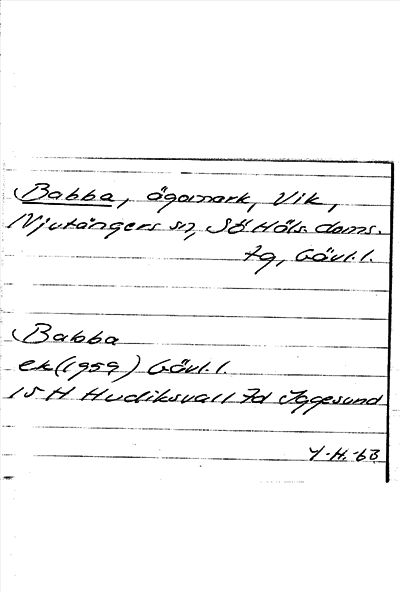 Babba, ägomark, Vik,
Njutångers sn, Sö Häls. doms.
tg, Gävl.l.
Babba
ek (1959) Gävl.l.
15 H Hudiksvall 7d Iggesund
Y-H.-63